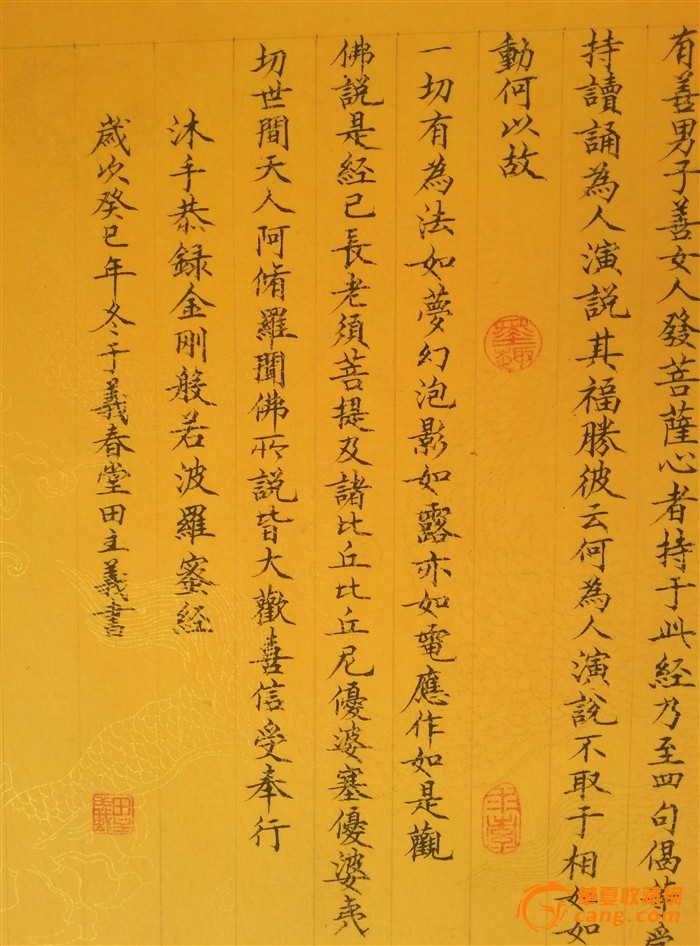 有善男子善女人發菩薩心者持于此经乃至四句偈等受
持讀誦為人演説其福勝彼云何為人演説不取于相如如
動何以故
一切有為法如夢幻泡影如露亦如電應作如是觀
佛説是经已長老須菩提及諸比丘比丘尼優婆塞優婆夷
切世間天人阿脩羅聞佛所説皆大歡喜信受奉行
沐手恭録金剛般若波羅蜜经
歲次癸巳年冬于義春堂田主義書
華夏收藏网
cang.com